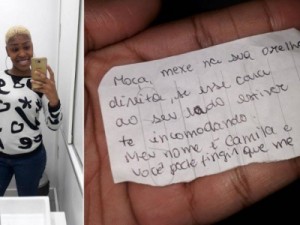 Moça, mexe na sua orelha
direita, se esse cara
ao seu lado estiver
te incomodando.
Meu nome é Camila e
você pode fingir que me